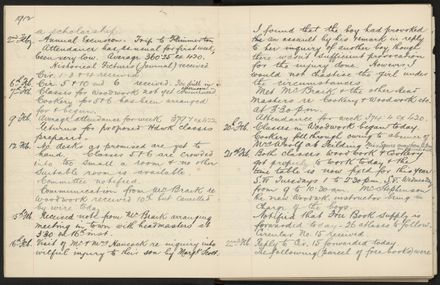 1912
a scholarship.
2nd Feby. Annual Excursion. Trip to Plimmerton
Attendance has, as usual for first week,
been very low. Average 360.35 ex 430.
Historical Pictures (Journal) received
Circ. 1-3 & 4 received.
6th Feb. Cir. 5 & 10 and 6 received.
7th Feb. Classes for Woodwork not yet commenced
Cookery for St 6 has been arranged
for & begun.
9th Feb. Average attendance for week
Returns for proposed Hawk classes
prepared
12th Feb. No desks as promised are yet to
hand. Classes 5 & 6 are crowded
into the small a room & no other
suitable room is available
Committee notified.
Communication from Mr Braik re
Woodwork received 10th but cancelled
by wire today
15th Feb. Received note from Mr Braik arranging
meeting in town with headmasters at
3.30 on 16th inst.
16th Feb. Visit of Mr & Mrs Hancock re inquiry into
wilful injury to their son by Margt Scott.
I found that the boy had provoked
the assault by his remark in reply
to her inquiry of another boy, though
there wasn't sufficient provocation
for the injury done. However I
would not chastise the girl under
the circumstances.
Met Mr Braik & the other Head
Masters re Cookery & Woodwork etc.
at 3.30 p.m.
Attendance for week 394.4 ex 430.
20th Feb. Classes in Woodwork began today
Cookery fell through owing to absence of
Mrs Woolf at Feilding
21st Feb. Both classes Woodwork & Cookery
got properly to work today & the
time table is now fixed for this year
S.VI Tuesdays 1 to 2.30 p.m, S.V Wednesdays
from 9 to 10.30 am. Mr Stephenson
the new Woodwork instructor being in
charge of the boys.
Notified that Free Book supply is
forwarded today - 26 atlases to follow.
Circular No. 15 received
22nd Feb. Reply to Cir. 15 forwarded today
The following (parcel of free books) were